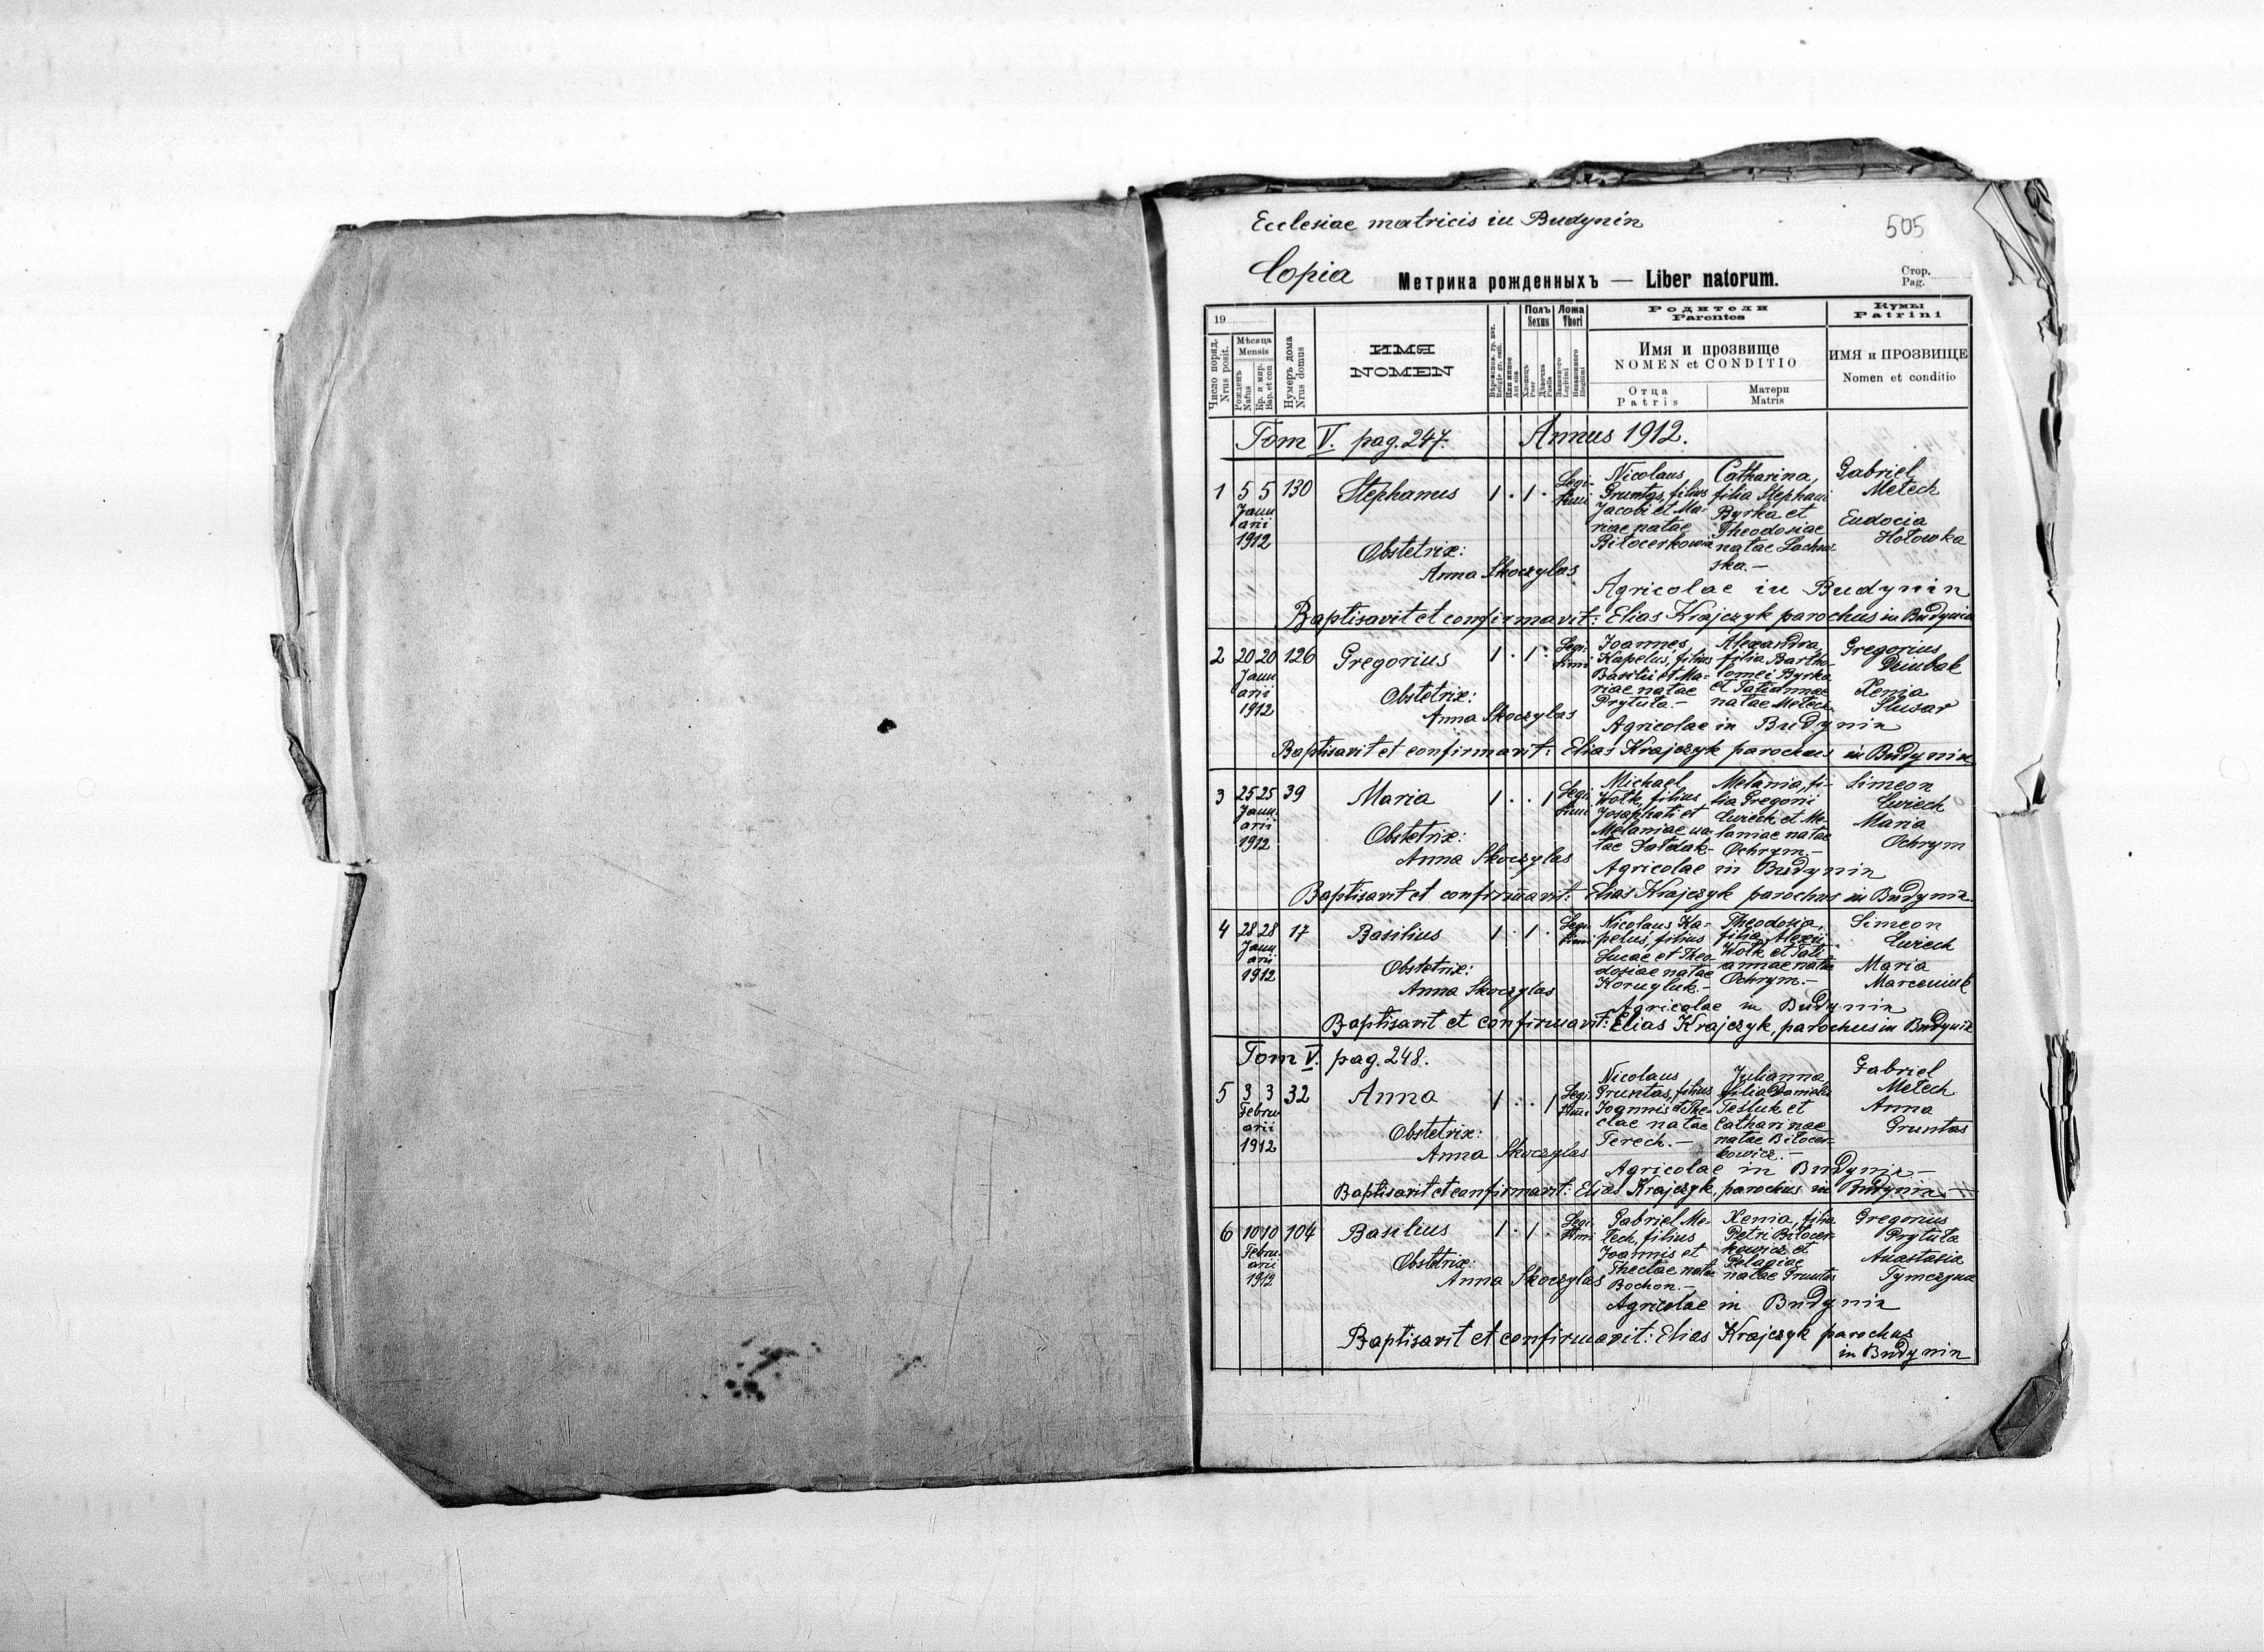 Ecclesiae matricis in Budynin
505
Copia
Метрика рожденныхъ — Liber natorum.
Стор.
Pag.
19
Число поряд.
Nrus posit.
Мѣсяца
Mensis
Рожденъ
Natus
Кр. и мир.
Bap. et con.
Нумеръ дома
Nrus domus
ИМЯ
NOMEN
Полъ
Sexus
Хлопецъ
Puer
Дѣвочка
Puella
Ложа
Thori
Родители
Parentes
Имя и прозвище
NOMEN et CONDITIO
Отца
Patris
Матери
Matris
Кумы
Patrini
ИМЯ и ПРОЗВИЩЕ
Nomen et conditio
Tom V. pag. 247. Annus 1912.
1 5 5 130
Janu
arii
1912
Stephanus
Obstetrix:
Anna Skoczylas
1 . 1 .
Legi-
timi
Nicolaus
Gruntas, filius
Jacobi et Ma-
riae natae
Biłocerkowicz
Catharina,
filia Stephani
Byrka et
Theodosiae
natae Lachow-
ska.—
Gabriel
Metech
Eudocia
Hołowka
Agricolae in Budynin
Baptisavit et confirmavit: Elias Krajczyk parochus in Budynin
2 20 20 126
Janu
arii
1912
Gregorius
Obstetrix:
Anna Skoczylas
1 . 1 .
Legi
timi
Joannes
Kapelus, filius
Basilii et Ma-
riae natae
Prytuła.—
Alexandra,
filia Bartho-
lomei Byrka
et Tatiannae
natae Metech.
Gregorius
Dziubak
Xenia
Slusar
Agricolae in Budynin
Baptisavit et confirmavit: Elias Krajczyk parochus in Budynin
3 25 25 39
Janu-
arii
1912
Maria
Obstetrix:
Anna Skoczylas
1 . . 1
Legi
timi
Michael
Wołk, filius
Josaphati et
Melaniae na-
tae Sałdak-
Melania, fi-
lia Gregorii
Lwiech et Me-
laniae natae
Ochrym.—
Simeon
Lwiech
Maria
Ochrym
Agricolae in Budynin
Baptisavit et confirmavit: Elias Krajczyk parochus in Budynin.
4 28 28 17
Janu
arii
1912
Basilius
Obstetrix:
Anna Skoczylas
1 . 1 .
Legi
timi
Nicolaus Ka-
pelus, filius
Lucae et Theo-
dosiae natae
Kornyluk.—
Theodosia,
filia Alexii
Wołk et Tati
annae natae
Ochrym.—
Simeon
Lwiech
Maria
Marceniuk
Agricolae in Budynin
Baptisavit et confirmavit: Elias Krajczyk, parochus in Budynin
Tom V. pag. 248.
5 3 3 32
Febru
arii
1912
Anna
Obstetrix:
Anna Skoczylas
1 . . 1
Legi
timi
Nicolaus
Gruntas, filius
Joannis et The-
clae natae
Terech.—
Julianna,
filia Danielis
Tesluk et
Catharinae
natae Biłocer-
kowicz.—
Gabriel
Metech
Anna
Gruntas
Agricolae in Budynin—
Baptisavit et confirmavit: Elias Krajczyk, parochus in Budynin.—
6 10 10 104
Febru-
arii
1912
Basilius
Obstetrix:
Anna Skoczylas
1 . 1 .
Legi
timi
Gabriel Me-
tech, filius
Joannis et
Theclae natae
Bochon.—
Xenia, filia
Petri Biłocer-
kowicz et
Pelagiae
natae Gruntas
Gregorius
Prytuła
Anastasia
Tymczyna
Agricolae in Budynin
Baptisavit et confirmavit: Elias Krajczyk parochus
in Budynin